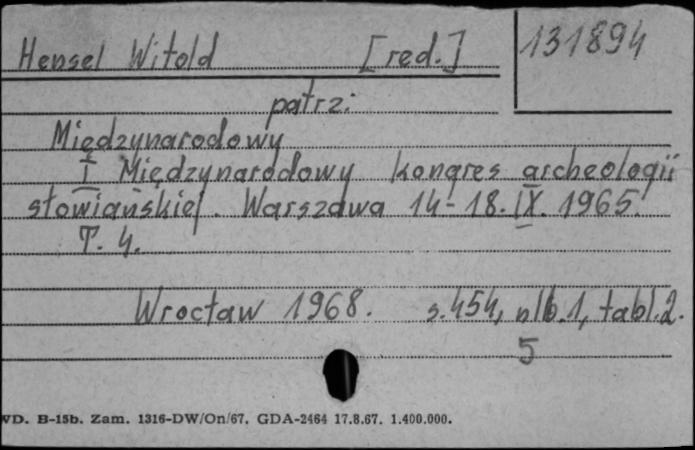 Hensel Witold [red.] 131894
patrz:
Międzynarodowy
I Międzynarodowy kongres archeologii
słowiańskiej. Warszawa 14-18.IX.1965.
T. 4.
Wrocław 1968. s.454, nlb.1, tabl.2.
5
WD. B-15b. Zam. 1316-DW/On/67. GDA-2464 17.8.67. 1.400.000.